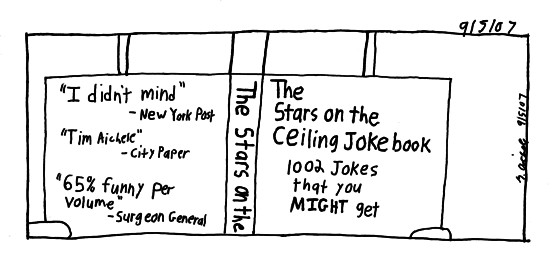 9/5/07
"I didn't mind"
- New York Post
"Tim Aichele"
- City Paper
"65% funny per
volume"
- Surgeon General
The Stars on the
The
Stars on the
Ceiling Joke book
1002 Jokes
that you
MIGHT get
9/5/07